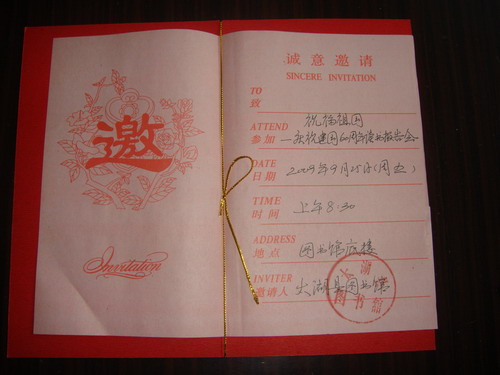 邀
Invitation
诚意邀请
SINCERE INVITATION
TO
致
祝福祖国
ATTEND
参加 —庆祝建国60周年读书报告会
DATE
日期 2009年9月25日(周五)
TIME
时间 上午8:30
ADDRESS
地点 图书馆底楼
INVITER
邀请人 太湖县图书馆
太湖
图书馆